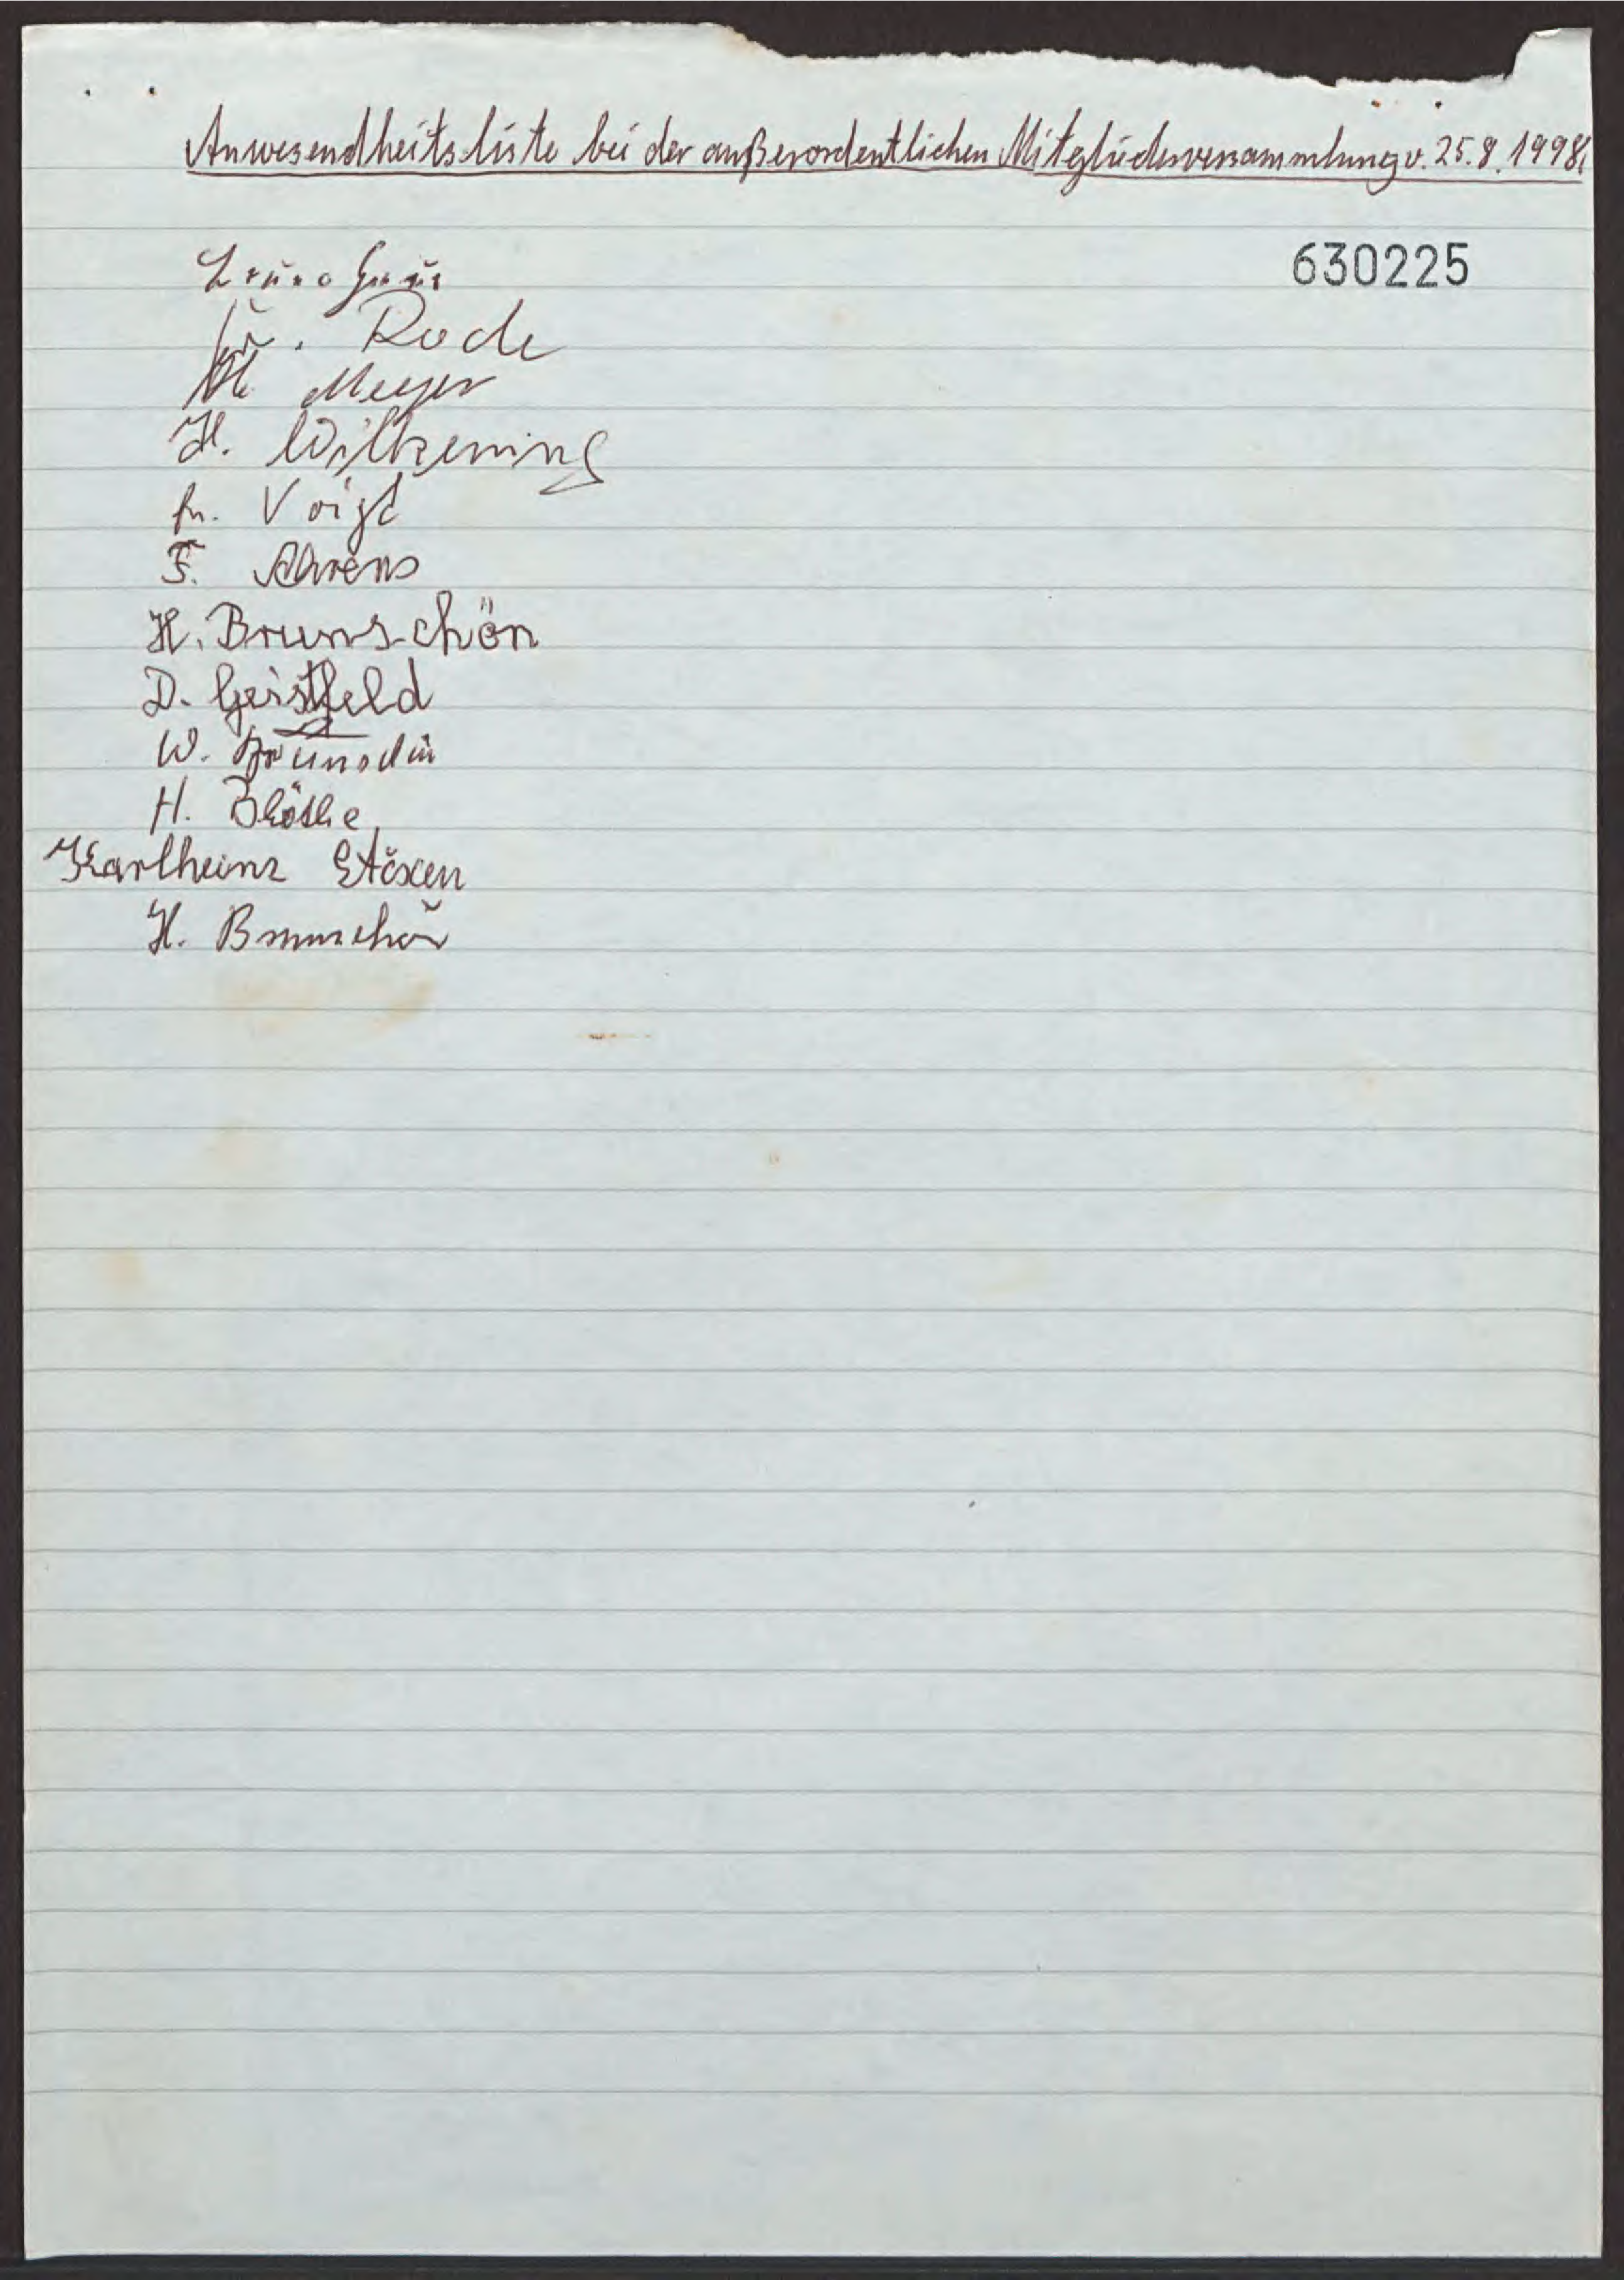 Anwesendheitsliste bei der außerordentlichen Mitgliederversammlung v. 25.8.1998.
630225
Rode
Meyer
H. Wilkening
Voigt
F. Ahrens
H. Brunschön
D. Geistfeld
W.
H. Böthe
Karlheinz Stöxen
H. Brunschön